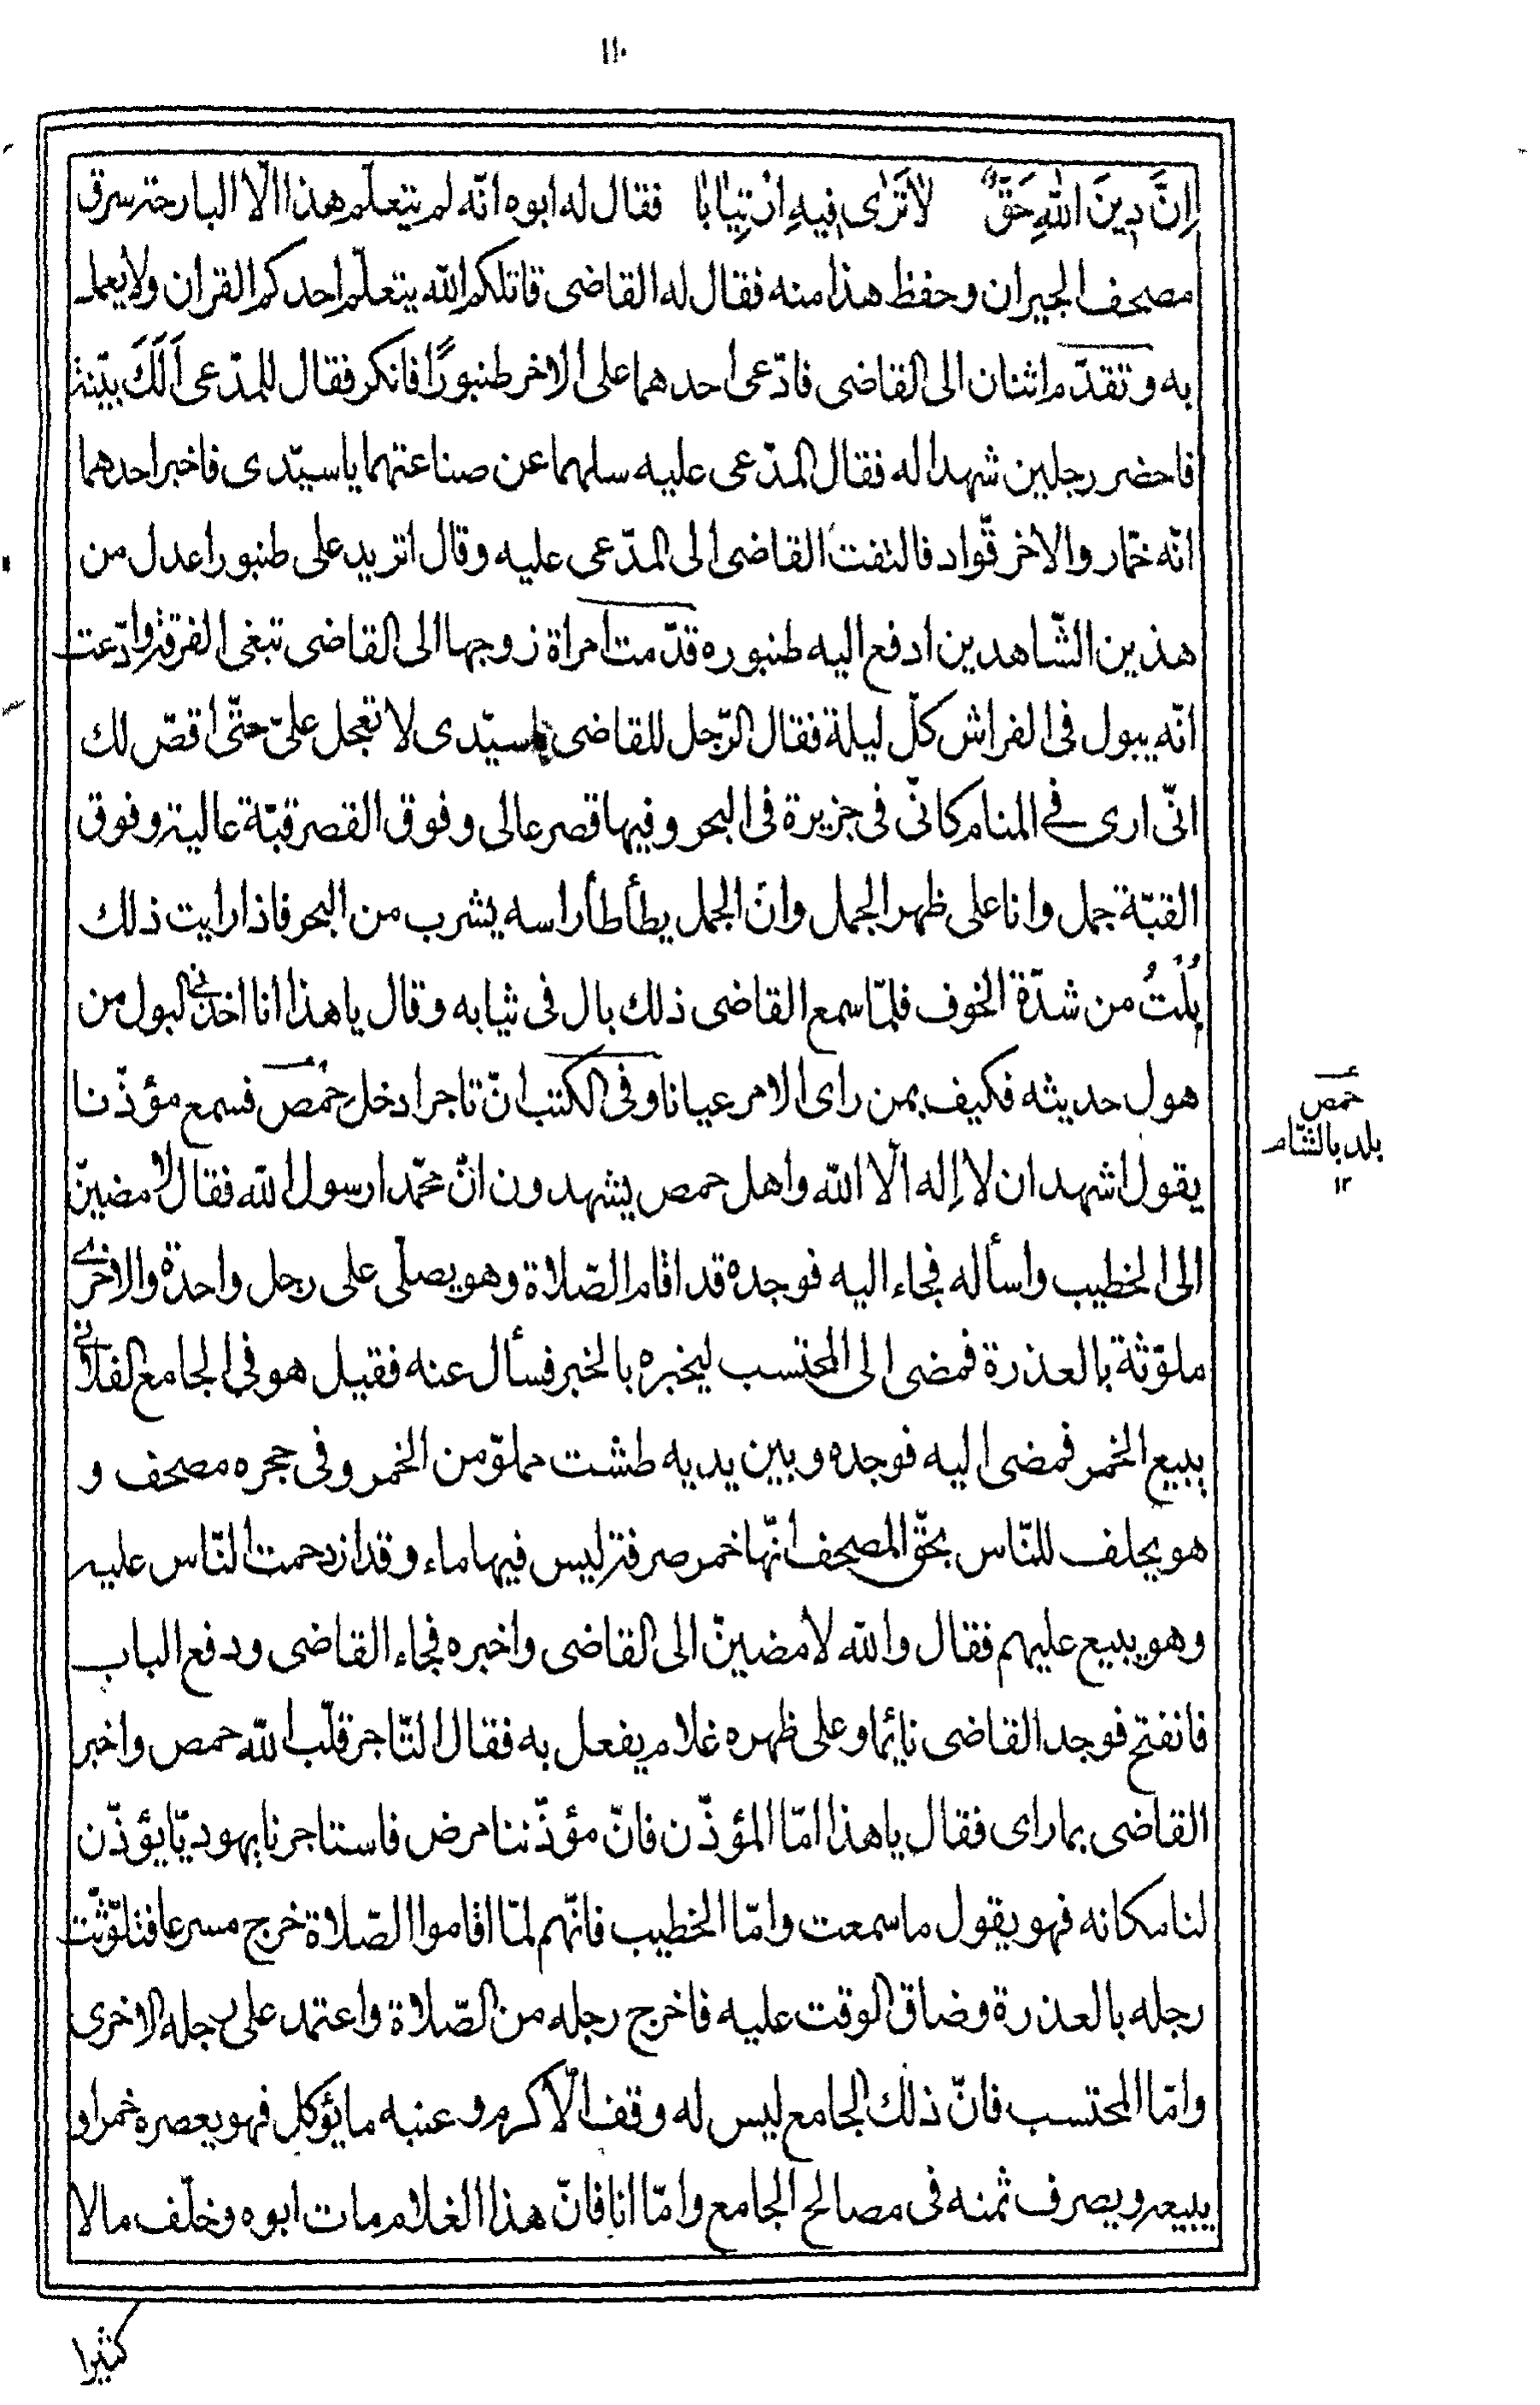 ١١٠
اِنَّ دِينَ اللهِ حَقٌّ لاٰتَرٰى فِيهِ ارْتِيٰابٰا فقال له ابوه انّه لم يتعلّم هذا الّا البارحة سرق
مصحف الجيران وحفظ هذا منه فقال له القاضى قاتلكم الله يتعلّم احدكم القران ولا يعمل
به وتقدّم اثنان الى القاضى فادّعى احدهما على الاخر طنبورًا فانكر فقال للمدّعى اَلَكَ بيّنة
فاحضر رجلين شهدا له فقال المدّعى عليه سلهما عن صناعتهما يا سيّدى فاخبر احدهما
انّه خمّار والاخر قوّاد فالتفت القاضى الى المدّعى عليه وقال اتريد على طنبور اعدل من
هذين الشّاهدين ادفع اليه طنبوره قدّمت امراة زوجها الى القاضى تبغى الفرقة وادّعت
انّه يبول فى الفراش كلّ ليلة فقال الرّجل للقاضى يا سيّدى لا تعجل علىّ حتّى اقصّ لك
انّى ارى فى المنام كانّى فى جزيرة فى البحر وفيها قصر عالى وفوق القصر قبّة عالية وفوق
القبّة جمل وانا على ظهر الجمل وانّ الجمل يطأطأ راسه يشرب من البحر فاذا رايت ذلك
بُلْتُ من شدّة الخوف فلمّا سمع القاضى ذلك بال فى ثيابه وقال يا هذا انا اخذنى البول من
هول حديثه فكيف بمن راى الامر عيانا وفى الكتب انّ تاجرا دخل حمص فسمع مؤذّنا
يقول اشهد ان لا اله الّا الله واهل حمص يشهدون انّ محمّدا رسول الله فقال لامضينّ
الى الخطيب واسأله فجاء اليه فوجده قد اقام الصّلاة وهو يصلّى على رجل واحدة والاخرى
ملوّثة بالعذرة فمضى الى المحتسب ليخبره بالخبر فسأل عنه فقيل هو فى الجامع الفلانى
يبيع الخمر فمضى اليه فوجده وبين يديه طشت مملوّ من الخمر وفى حجره مصحف و
هو يحلف للنّاس بحقّ المصحف انّها خمر صرفة ليس فيها ماء وقد ازدحمت النّاس عليه
وهو يبيع عليهم فقال والله لامضينّ الى القاضى واخبره فجاء القاضى ودفع الباب
فانفتح فوجد القاضى نائما وعلى ظهره غلام يفعل به فقال التّاجر قلّب الله حمص واخبر
القاضى بما راى فقال يا هذا امّا المؤذّن فانّ مؤذّننا مرض فاستاجرنا يهوديّا يؤذّن
لنا مكانه فهو يقول ما سمعت وامّا الخطيب فانّهم لمّا اقاموا الصّلاة خرج مسرعا فتلوّثت
رجله بالعذرة وضاق الوقت عليه فاخرج رجله من الصّلاة واعتمد على رجله الاخرى
وامّا المحتسب فانّ ذلك الجامع ليس له وقف الّا كرم و عنبه ما يؤكل فهو يعصره خمرا و
يبيعه ويصرف ثمنه فى مصالح الجامع وامّا انا فانّ هذا الغلام مات ابوه وخلّف مالا
كثيرا
حمص
بلد بالشّام
١٢